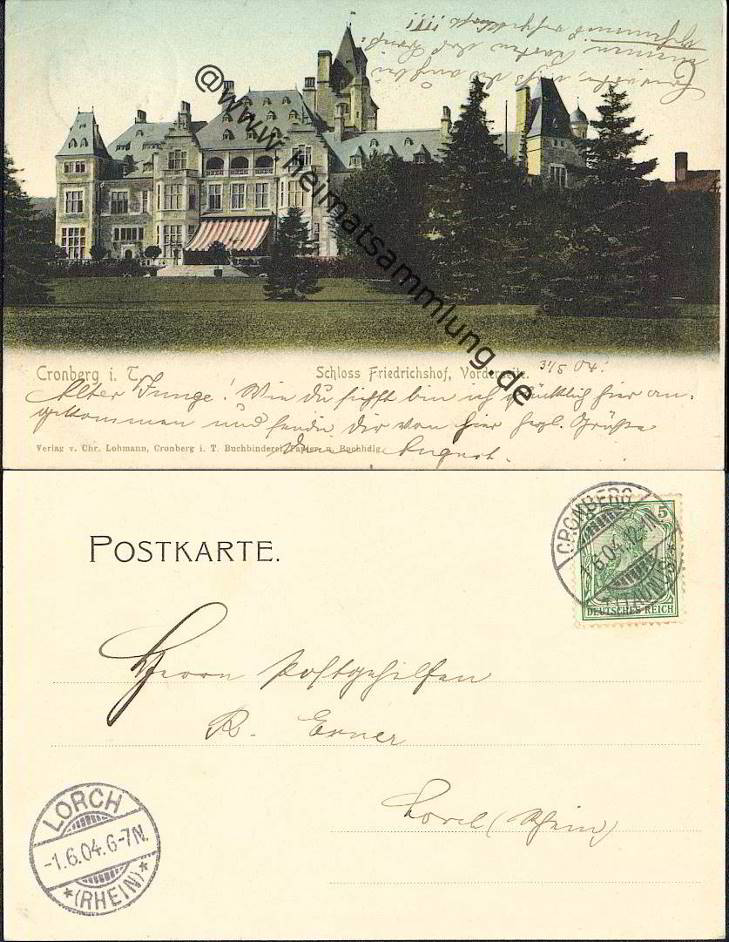 @www.heimatsammlung.de
meinen Karten
Cronberg i. T.
Schloss Friedrichshof, Vorderseite.
31/5 04.
Alter Junge! Wie du siehst bin ich glücklich hier an-
gekommen und sende dir von hier herzl. Grüße
Dein August.
Verlag v. Chr. Lohmann, Cronberg i. T. Buchbinderei, Papier- u. Buchhdlg.
POSTKARTE.
CRONBERG
1.6.04.12-1N.
*(TAUNUS)*
5
DEUTSCHES REICH
Herrn Postgehilfen
R. Exner
Lorch (Rhein)
LORCH
-1.6.04.6-7N.
*(RHEIN)*